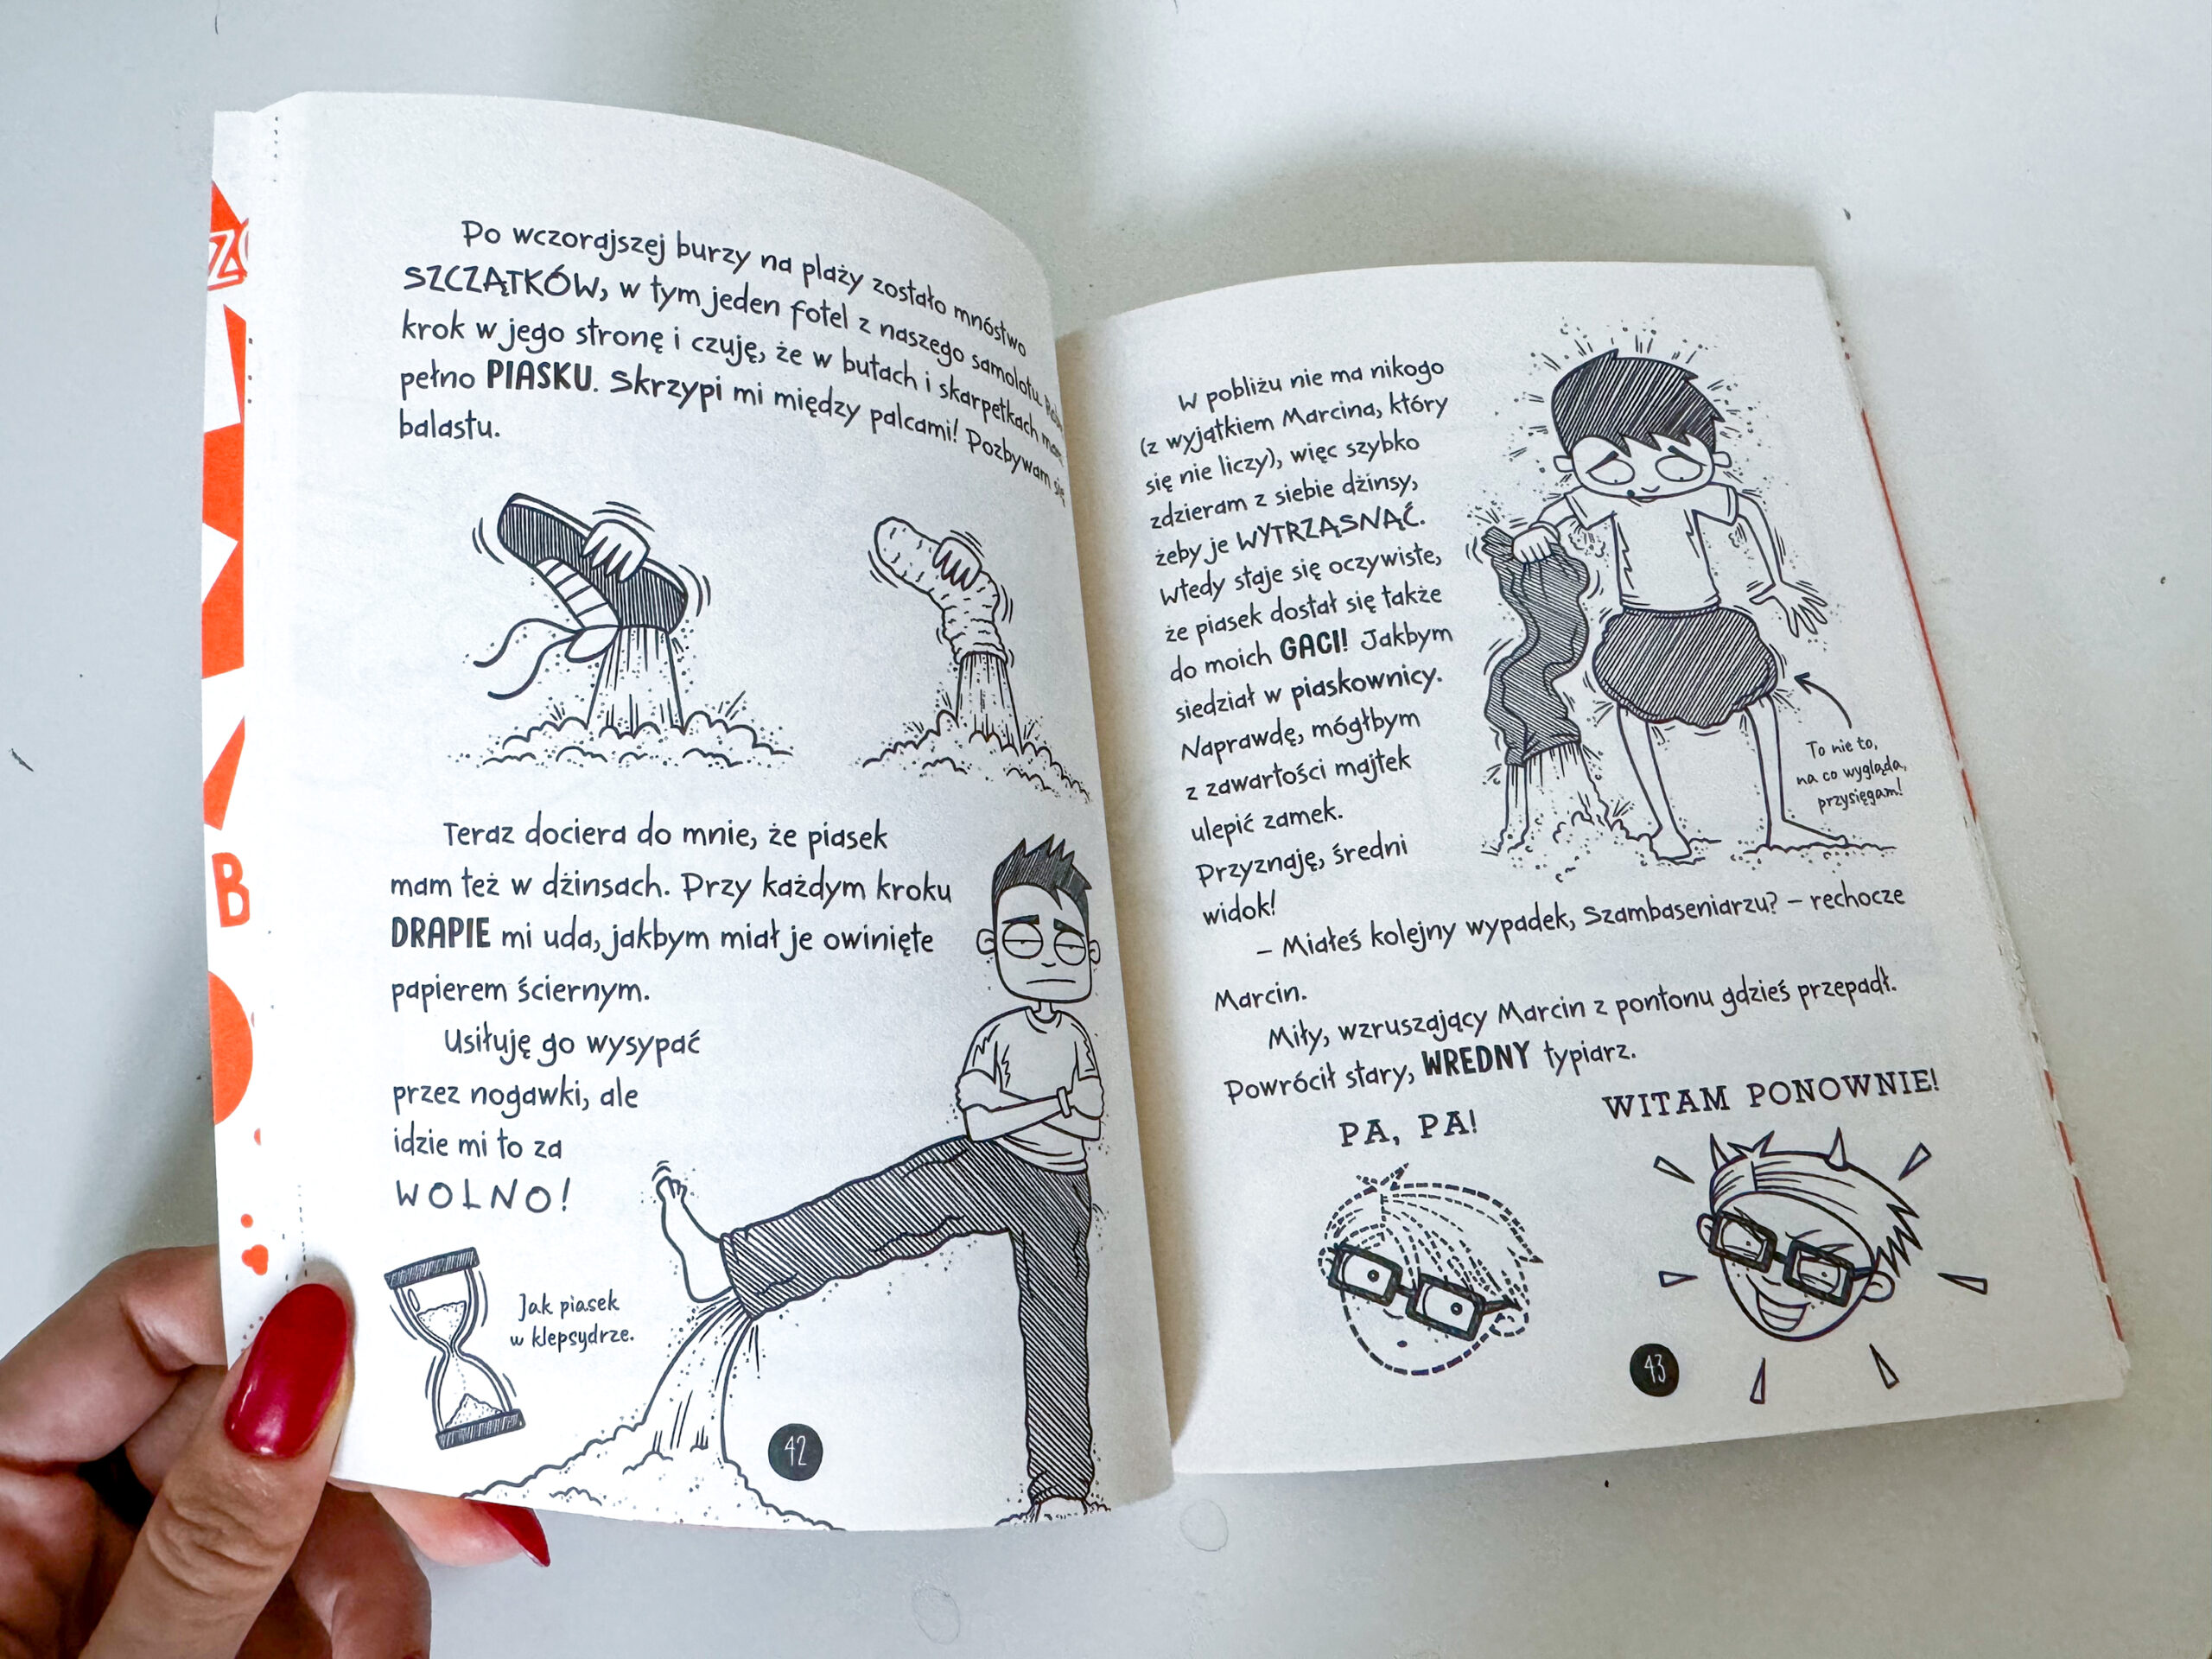 Po wczorajszej burzy na plaży zostało mnóstwo
SZCZĄTKÓW, w tym jeden fotel z naszego samolotu. Robię
krok w jego stronę i czuję, że w butach i skarpetkach mam
pełno PIASKU. Skrzypi mi między palcami! Pozbywam się
balastu.
Teraz dociera do mnie, że piasek
mam też w dżinsach. Przy każdym kroku
DRAPIE mi uda, jakbym miał je owinięte
papierem ściernym.
Usiłuję go wysypać
przez nogawki, ale
idzie mi to za
WOLNO!
Jak piasek
w klepsydrze.
42
B
W pobliżu nie ma nikogo
(z wyjątkiem Marcina, który
się nie liczy), więc szybko
zdzieram z siebie dżinsy,
żeby je WYTRZĄSNĄĆ.
Wtedy staje się oczywiste,
że piasek dostał się także
do moich GACI! Jakbym
siedział w piaskownicy.
Naprawdę, mógłbym
z zawartości majtek
ulepić zamek.
Przyznaję, średni
widok!
To nie to,
na co wygląda,
przysięgam!
– Miałeś kolejny wypadek, Szambaseniarzu? – rechocze
Marcin.
Miły, wzruszający Marcin z pontonu gdzieś przepadł.
Powrócił stary, WREDNY typiarz.
PA, PA!
WITAM PONOWNIE!
43